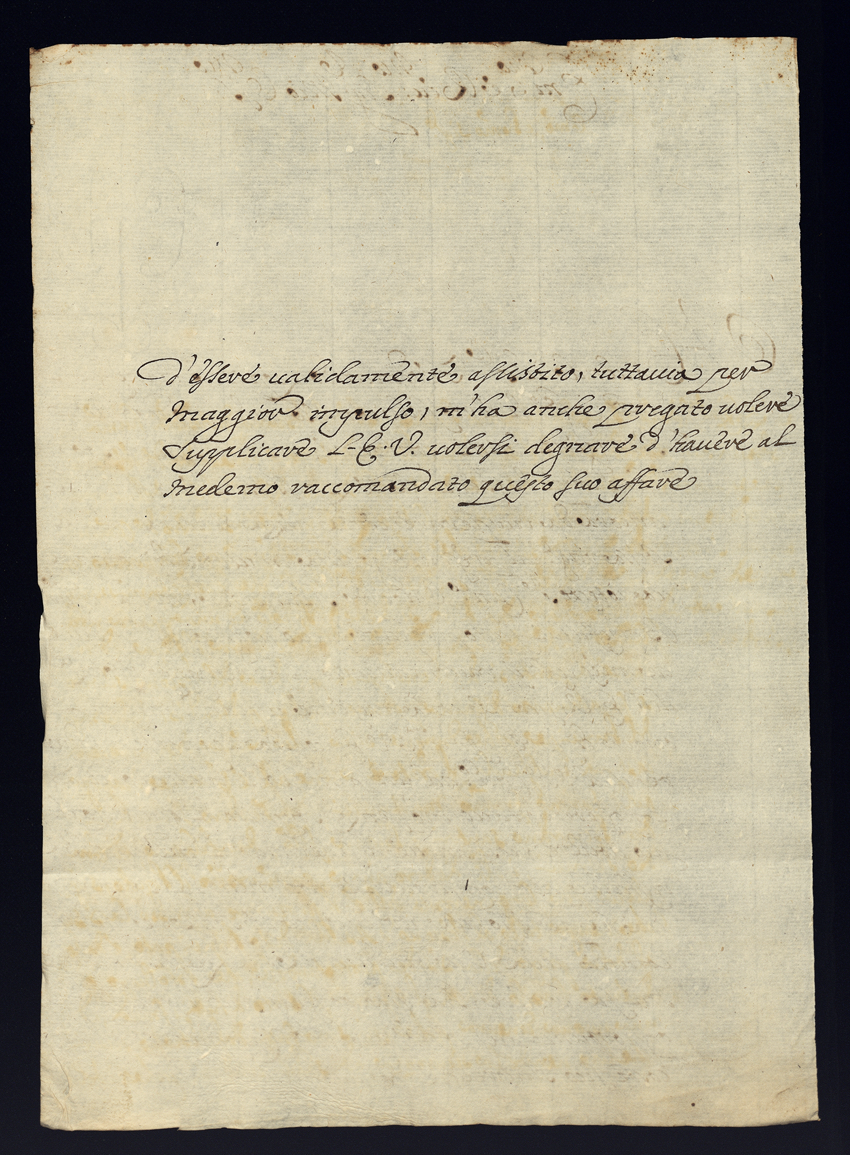 d'essere validamente assistito, tuttauia per
maggior impulso, m'ha anche pregato uolere
supplicare L. E. V. uolersi degnare d'hauere al
medemo raccomandato questo suo affare